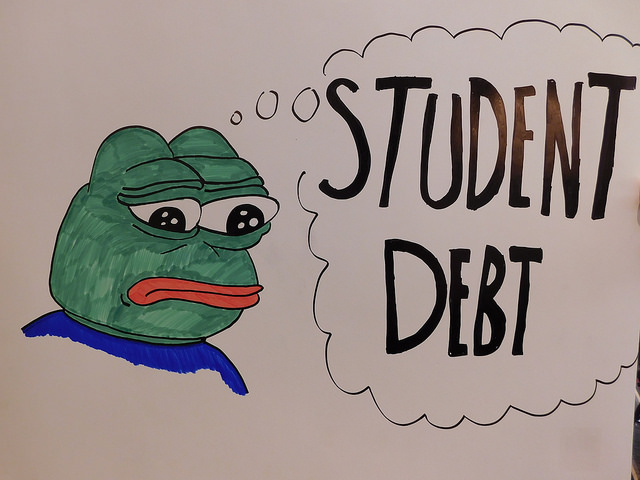 STUDENT
DEBT